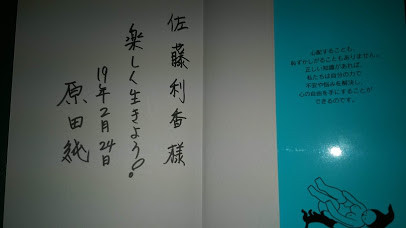 佐藤利香様
楽しく生きよう!
19年2月24日
原田純
心配することも、
恥ずかしがることもありません。
正しい知識があれば、
私たちは自分の力で
不安や悩みを解決し、
心の自由を手にすることが
できるのです。